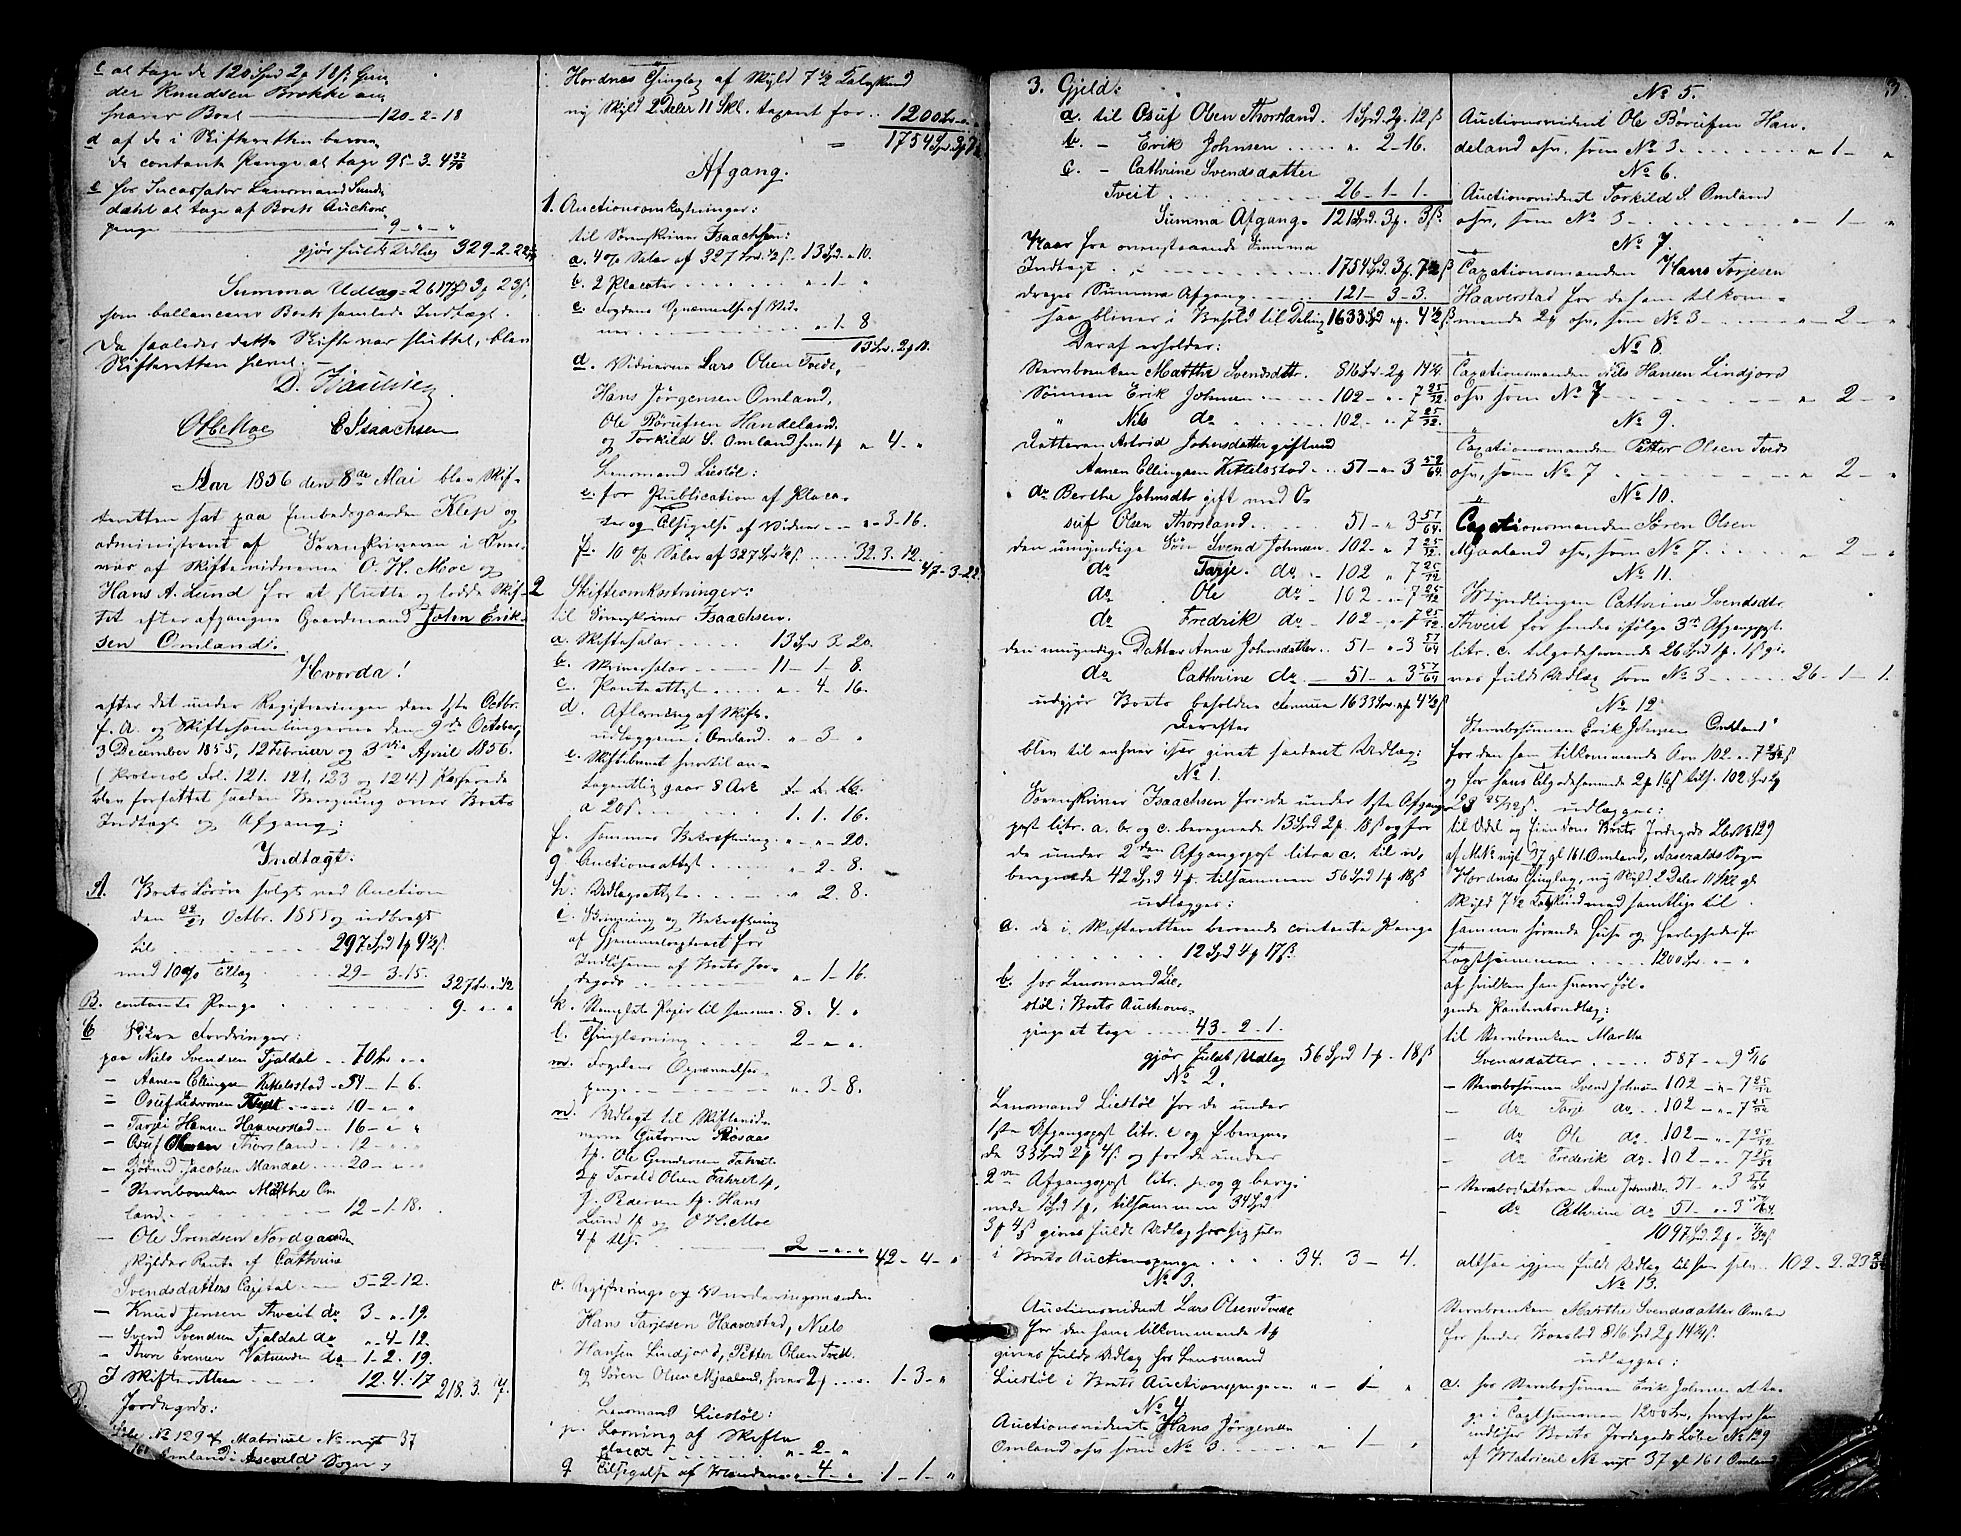 c at tage de 120 Spd 2 18ß Gun
der Knudsen Brokke an
svarer Boet 120-2-18
d af de i Skifteretten beroen
de contante Penge at tage 95-3-4
e hos Incassator Lensmand Sun
dahl at tage af Boets Auctions
penge 9 - " - "
gjør fuldt Udlæg 329-2-22
Summa Udlæg
som ballancerer Boets samlede Indtægt.
Da saaledes dette Skifte var sluttet, blev
Skifteretten hevet.
D. Isachsen
OHMoe E Isaachsen
Aar 1856 den 8de Mai blev Skif-
teretten sat paa Embedsgaarden Klep og
administreret af Sorenskriveren i Over-
vær af Skiftevidnerne O. H. Moe og
Hans A. Lund for at slutte og lodde Skif-
tet efter afgangne Gaardmand John Erik-
sen Omland.
Hvorda!
efter det under Registreringen den 1ste Octbr.
f. A. og Skiftesamlingerne den 9de October,
3 December 1855, 12 Februar og 3die April 1856.
(Protocol Fol. 121. 121, 123 og 124.) Passerede
blev forfattet saadan Beregning over Boets
Indtægt og Afgang:
Indtægt.
A. Boets Løsøre solgt ved Auction
den Octbr. 1855 og indbragt
til 297 Spd 1 9½ß.
med 10% Tillæg 29-3-15. 327
B. contante Penge 9. " "
C Sikre Fordringer:
paa Niels Svendsen Tjaldal .. 70
- Aanen Ellingsen Kittelsstad - 54-1-6.
- Osuf 10 - " "
- Tarjei Hansen Haaverstad .. 16 - " "
- Osuf Olsen Thorsland .. 12 - " "
- Jacobsen Mandal .... 20 - " "
- Stervboenken Marthe Om
land 12-1-18.
- Ole Svendsen Nordgaarden
skylder Rente af Cathrine
Svendsdatters Capital 5-2-12.
- Knud Jensen Thveit do 3 - " 19.
- Svend Svendsen Tjaldal do " 4-12.
- Thor Evensen Vatneden do 1-2.19.
I Skifteretten 12.4.17 218.3.17.
Jordegods:
Løbe No 129 af Matricul No nyt 37
161 Omland i Aaserald Sogn
Hordnes Thinglag af Skyld 7½ Kalvskind
ny Skyld 2 Daler 11 Skl. taxeret for .. 1200
1754 Spd
Afgang.
1. Auctionsomkostninger:
til Sorenskriver Isaachsen:
a. 4% Salær af 327 13 Spd " 10.
b. 2 Placater " 1 - "
c. Fogdens Opnævnelse af Vid-
ner " 1 - 8.
13 2 18.
d. Vidnerne Lars Olsen Tvede,
Hans Jørgensen Omland,
Ole Börufsen Handeland
og Torkild S. Omland hver 1 " 4 - "
Lensmand Liestøl:
e. for Publication af Placa-
ter og Tilsigelse af Vidner " 3-16.
f. 10% Salær af 327 32.3.12.
47-3-22
2 Skifteomkostninger:
til Sorenskriver Isaachsen.
a. Skiftesalær 13 Spd 3 20.
b. Skriversalær 11-1-8.
c. Panteattest " 4-16.
d. Aflæsning af Skifte-
udlæggene i Omland " 3 - "
e. Skiftebrevet hvortil an-
tagentlig gaar 8 Ark
a 20ß 1. 1. 16.
f. sammes Bekræftning " " 20.
g. Auctionsattest " 2-8.
h. Udlægsattest " 2-8.
i. Skrivning og Bekræftning
af Hjemmelscontract for
Indløseren af Boets Jor-
degods " 1-16
k. Stemplet Papir til samme 8. 4. "
l. Thinglæsning 2 - " "
m. Fogdens Opnævnelses-
penge " 3-8.
n. Udlagt til Skiftevid-
nerne Gutorm Røsaas
1 Ole Gundersen Fahret
2 Tarald Olsen Fahret 1,
J. Pedersen 1 Hans
Lund 1 og O H. Moe
4 tils. 2 - " " 42-4- "
o. Registrerings og Vurderingsmændene
Hans Tarjesen Haaverstad, Niels
Hansen Lindjord, Petter Olsen Tvede
og Søren Olsen Mjaaland, hver 2 1-3- "
Lensmand Liestøl:
p. Læsning af Skifte
placat " 2 - "
q Tilsigelse af Mændene " 4 - " 1-1- "
3. Gjeld:
a. til Osuf Olsen Thorsland. 1 Spd. 2 12ß
b. - Erik Johnsen ..... " 2-16.
c. - Cathrine Svendsdatter
Tveit 26-1-1.
Summa Afgang 121 Spd. 3 3ß.
Naar fra ovenstaaende Summa
Indtægt 1754 Spd. 3 7½ß
drages Summa Afgang 121-3-3.
saa bliver i Behold til Deling 1633 Spd " 4½ß.
Deraf erholder:
Stervboenken Marthe Svendsdatter. 816 Spd. 2 14¼.
Sønnen Erik Johnsen ..... 102 - " 7 25/32.
" Nils do " ..... 102 - " 7 25/32.
Datteren Astrid Johnsdatter gift med
Aanen Ellingsen Kittelsstad .. 51 - " 3 57/64
do Berthe Johnsdtr gift med O-
suf Olsen Thorsland 51 - " 3 57/64.
den umyndige Søn Svend Johnsen. 102 - " 7 25/32.
do Tarje. do - 102 " 7 25/32
do Ole do - 102 - " 7 25/32
do Fredrik do - 102 - " 7 25/32.
den umyndige Datter Anne Johnsdatter .. 51 - " 3 57/64
do Cathrine do 51 - " 3 57/64
udgjør Boets beholdne Summa 1633 " 4½ß
Derefter
blev til enhver især givet saadant Udlæg:
No 1.
Sorenskriver Isaachsen for de under 1ste Afgangs
post litr. a. b. og c. beregnede 13 Spd 2 18ß og for
de under 2den Afgangspost litra a. til n.
beregnede 42 Spd 4 tilsammen 56 Spd 1 18ß
udlægges:
a. de i Skifteretten beroende contante Penge
12 Spd 4 17ß.
b. hos Lensmand Lie-
støl i Boets Auctions-
penge at tage 43-2-1.
gjør fuldt Udlæg 56 Spd 1 - 18ß
No 2.
Lensmand Liestøl for de under
1ste Afgangspost litr. e og f bereg-
de 33 Spd 2 4ß. og for de under
2den Afgangspost litr. p. og q bereg-
nede 1 Spd 1, tilsammen 34 Spd
3 4ß gives fuldt Udlæg hos sig selv
i Boets Auctionspenge .... 34. 3 - 4.
No 3.
Auctionsvidnet Lars Olsen Tvede
for den ham tilkommende 1
gives fuldt Udlæg hos Lensmand
Liestøl i Boets Auctionspenge " - 1 - "
No 4.
Auctionsvidnet Hans Jørgensen
Omland osv. som No 3 " - 1 - "
No 5.
Auctionsvidnet Ole Börufsen Han-
deland osv. som No 3. " - 1 - "
No 6.
Auctionsvidnet Torkild S. Omland
osv. som No 3 " - 1 - "
No 7.
Taxationsmanden Hans Torjesen
Haaverstad for de ham tilkom-
mende 2 osv. som No 3 " - 2 - "
No 8.
Taxationsmanden Niels Hansen Lindjord
osv. som No 7 " - 2 - "
No 9.
Taxationsmanden Petter Olsen Tvede
osv. som No 7 " - 2 - "
No 10.
Taxationsmanden Søren Olsen
Mjaaland osv. som No 7. " - 2 - "
No 11.
Myndlingen Cathrine Svendsdtr
Thveit for hendes ifølge 3die Afgangspost
litr. c. tilgodehavende 26 Spd 1 1ß gi-
ves fuldt Udlæg som No 3 26-1-1.
No 12.
Stervbosønnen Erik Johnsen Omland
for den ham tilkommende Arv 102 - " 7 25/32ß
og for hans Tilgodehavende 2 16ß tils. 102 Spd 2
23 25/32ß. udlægges:
til Odel og Eiendom Boets Jordegods Løb No 129
af M No nyt 37 gl 161 Omland, Aaseralds Sogn
Hordnes Thinglag, ny Skyld 2 Daler 11 Skl. gl
Skyld 7½ Kalvskind med samtlige til
samme hørende Huse og Herligheder for
Taxtsummen ..... 1200 Spd. " "
af hvilken han svarer føl-
gende Panteretsudlæg:
til Stervboenken Marthe
Svendsdatter ..... 587 - " 9 5/16
- Stervbosønnen Svend Johnsen 102 - " 7 25/32
- do Tarje do. 102 - " 7 25/32
- do Ole do. 102 - " 7 25/32
- do Frederik do. 102 - " 7 25/32
- Stervbodatteren Anne Johnsdtr. 51 - " 3 57/64
- do Cathrine do 51 - " 3 57/64.
1097 Spd. 2
altsaa igjen fuldt Udlæg til ham selv .. 102-2.23 25/32
No 13.
Stervboenken Marthe Svendsdatter Omland
for hendes Boeslod 816 Spd 2 14¼ß.
udlægges:
a. hos Stervbosønnen Erik Johnsen at ta-
ge i Taxtsummen 1200 Spd, hvorfor han
indløser Boets Jordegods Løbe No 129
af Matricul No nyt 37 gl 161 Omland